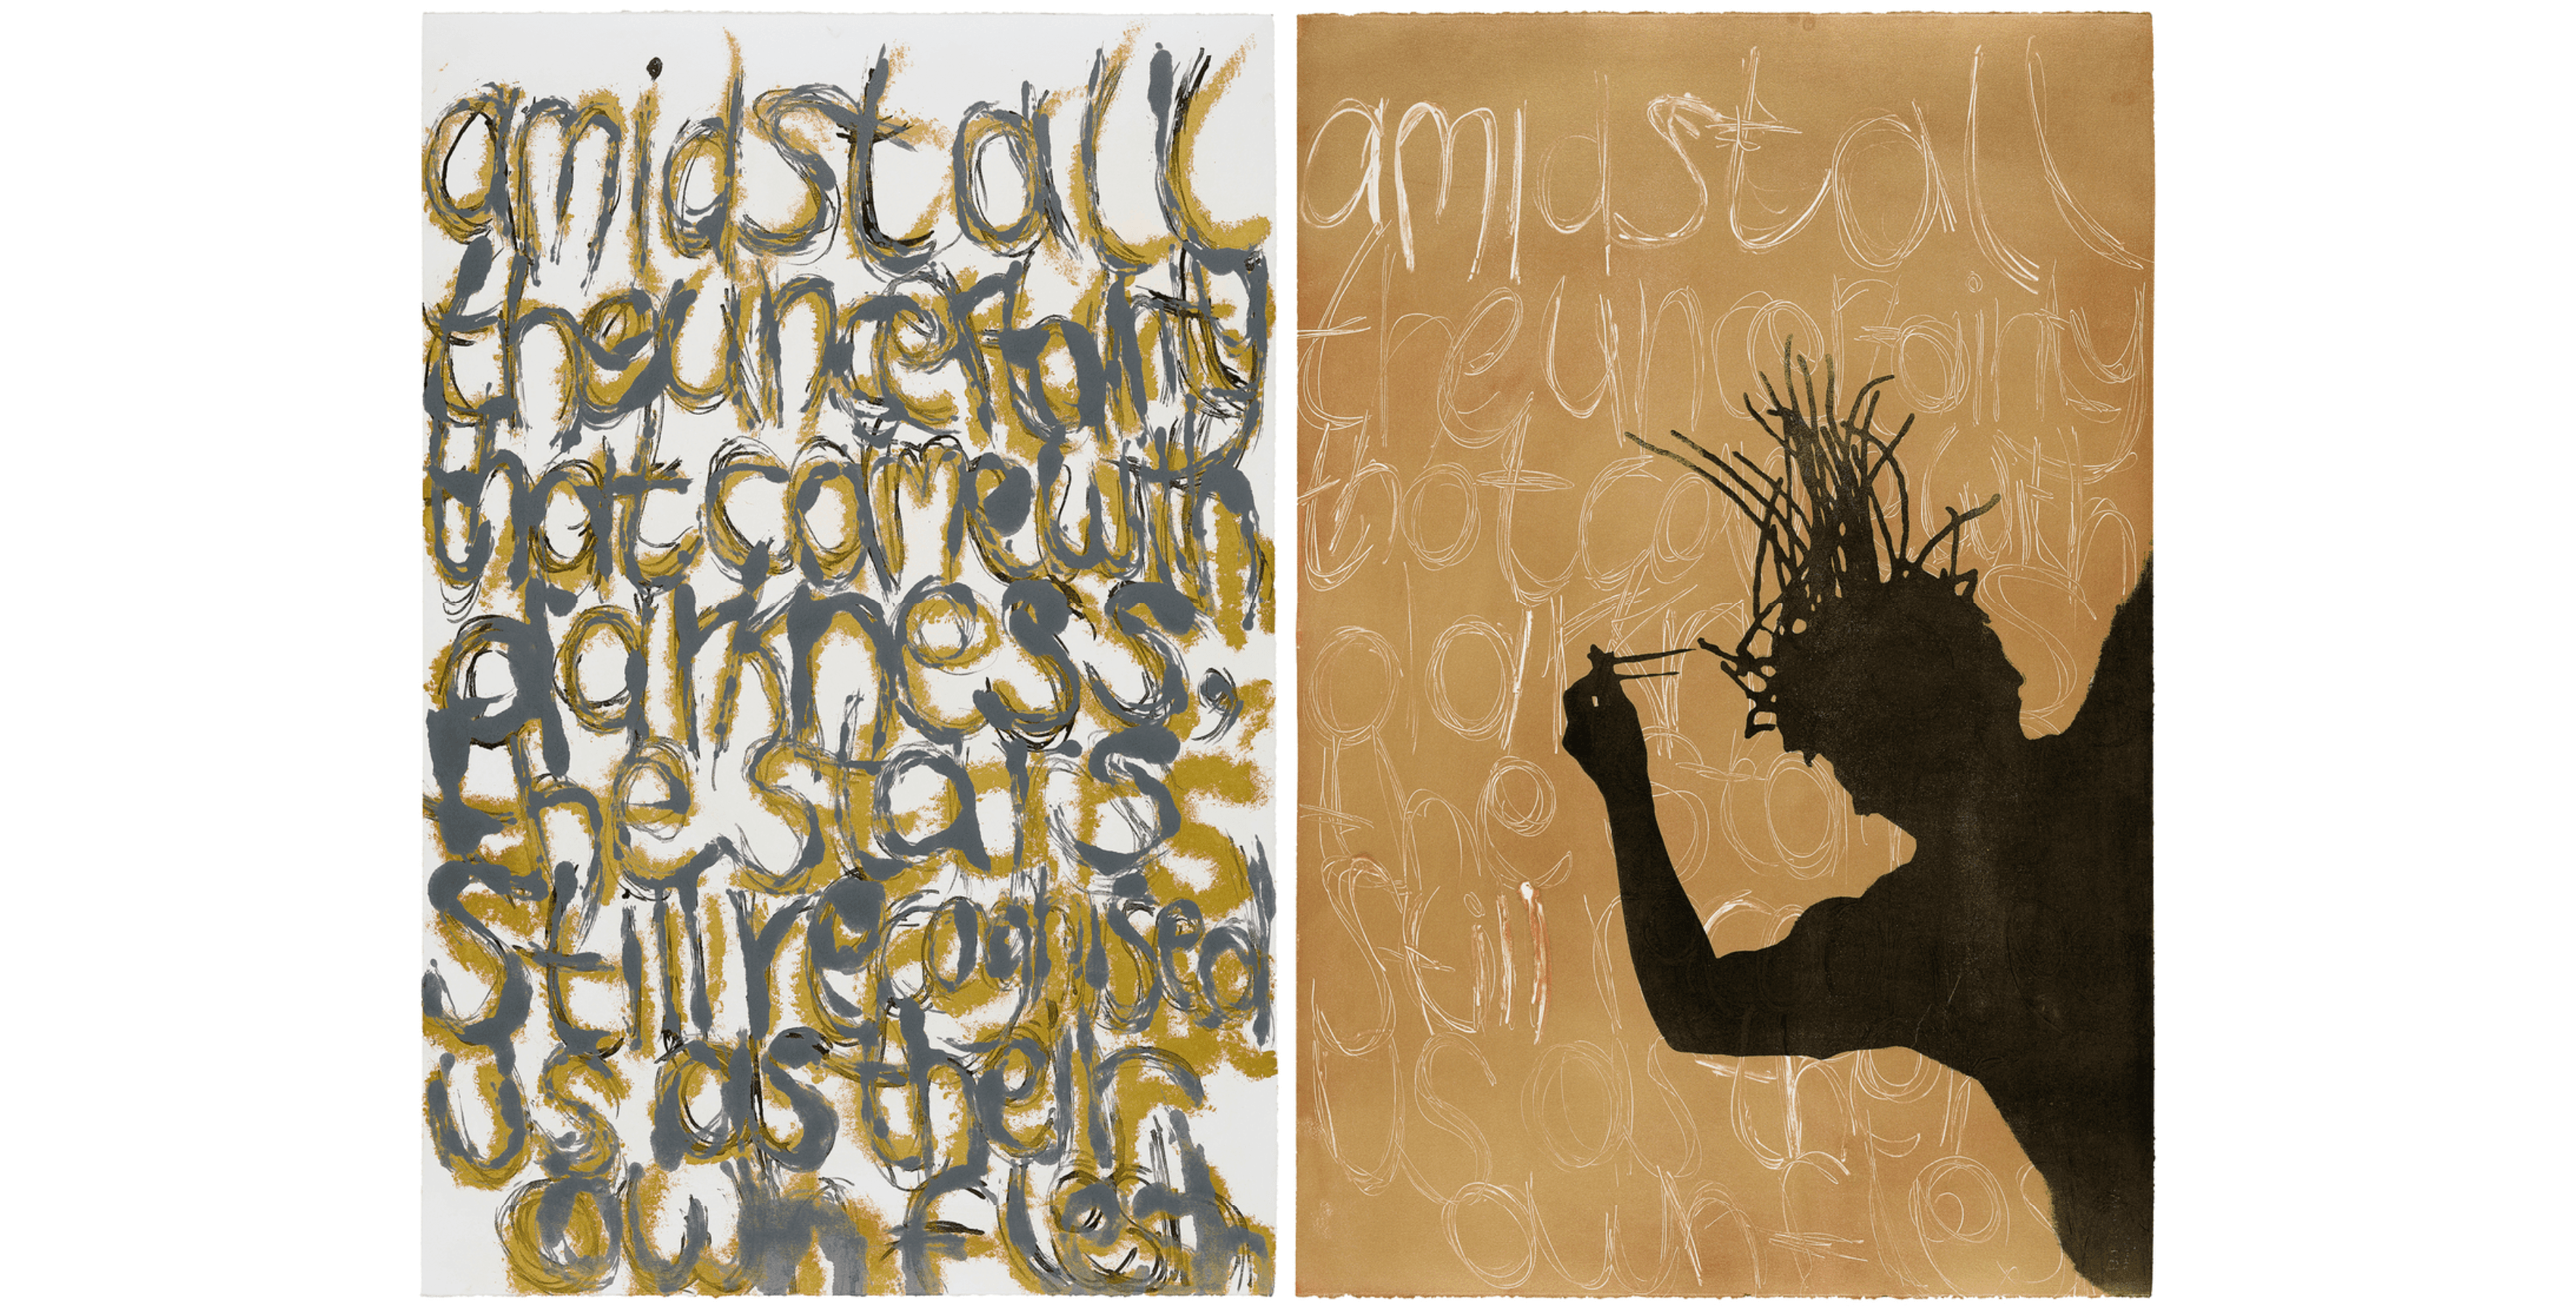 amidst all
the uncertainty
that came with
darkness,
the stars
still recognised
us as their
own flesh
amidst all
the uncertainty
that with
the
still
us as their
own fle